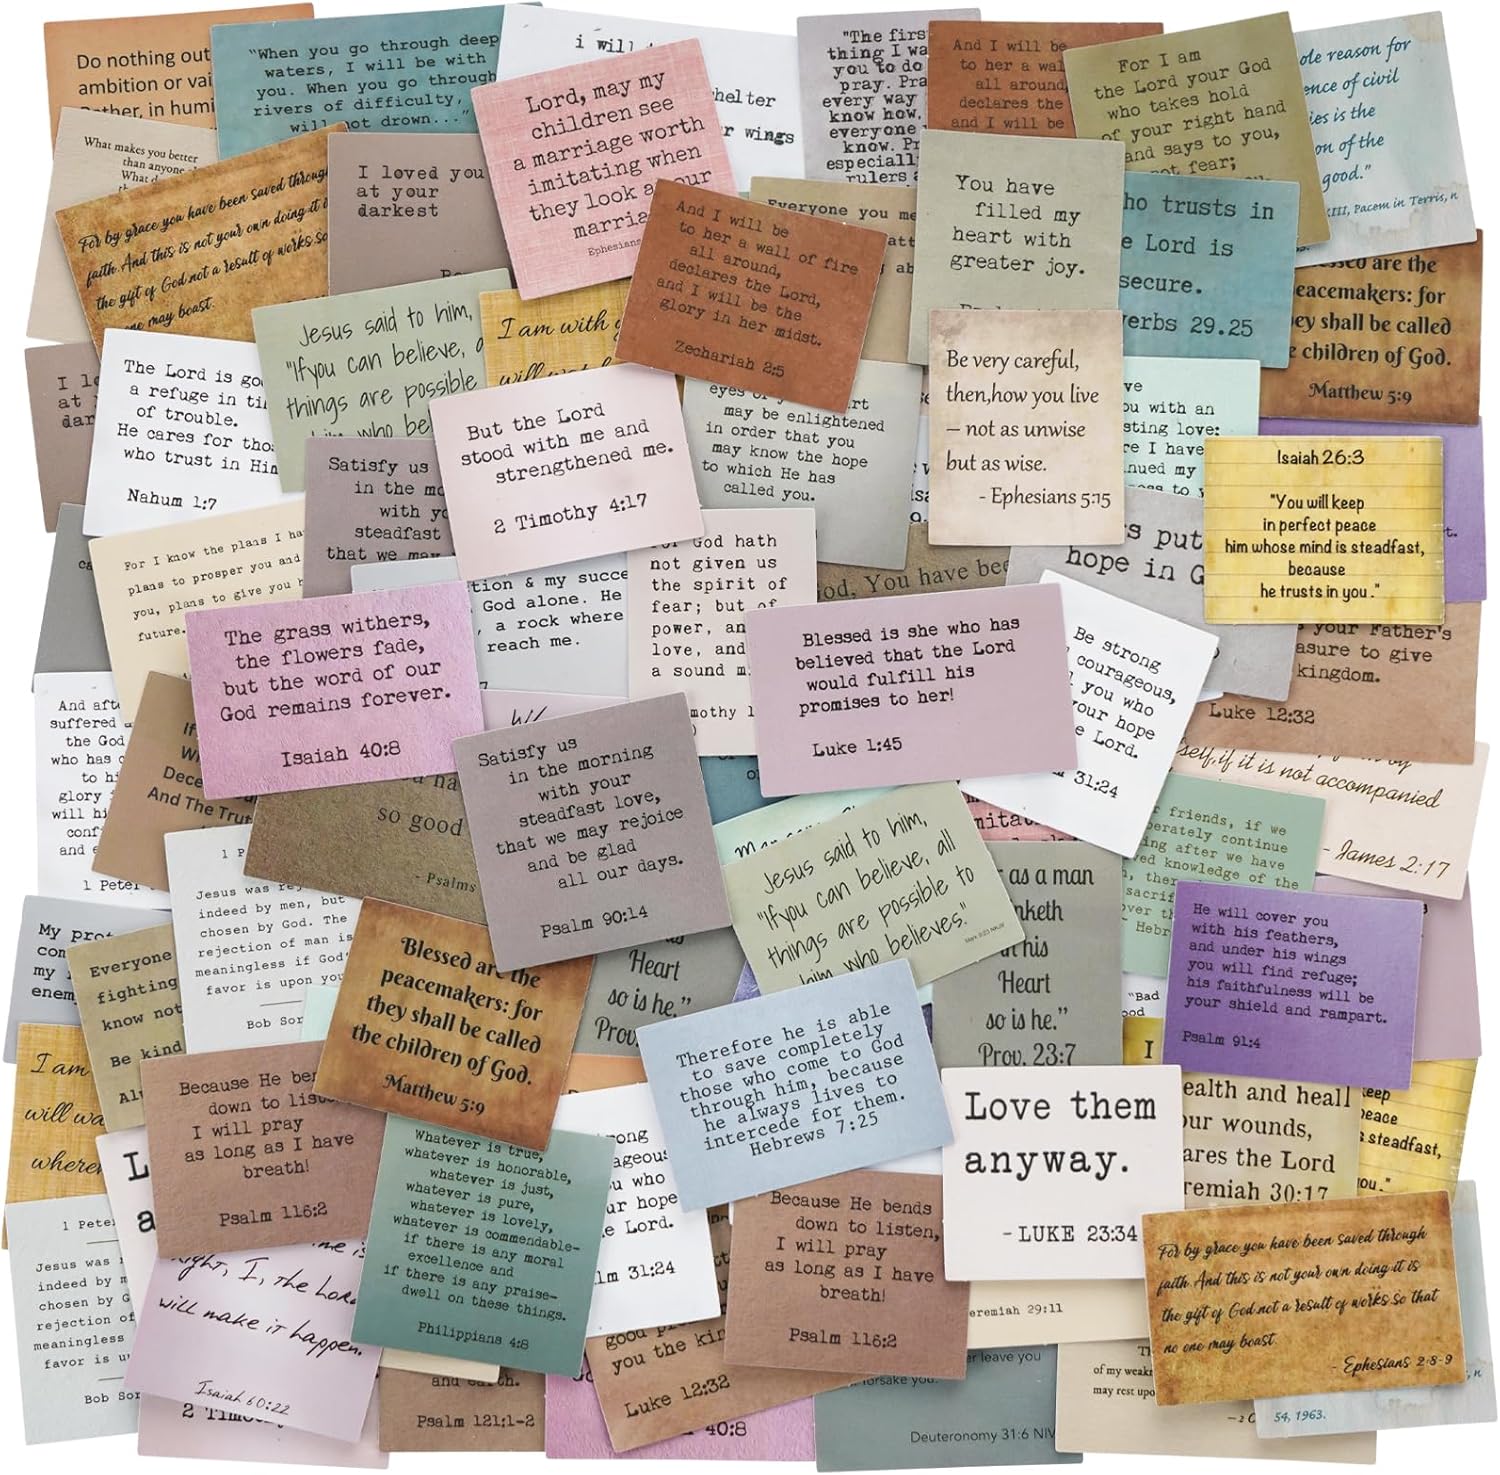 Do nothing out
ambition or vai
Rather, in humi
"When you go through deep
waters, I will be with
you. When you go through
rivers of difficulty,
will not drown..."
i will
shelter
wings
Lord, may my
children see
a marriage worth
imitating when
they look at our
marria
Ephesians
"The firs
thing I wa
you to do
pray. Pra
every way
know how,
everyone
know. Pr
especiall
rulers a
And I will be
to her a wal
all around,
declares the
and I will be
For I am
the Lord your God
who takes hold
of your right hand
and says to you,
not fear;
ole reason for
ence of civil
ies is the
on of the
good."
XIII, Pacem in Terris, n
What makes you better
than anyone
What d
For by grace you have been saved through
faith. And this is not your own doing it i
the gift of God.not a result of works.so
one may boast.
I loved you
at your
darkest
Everyone you me
And I will be
to her a wall of fire
all around,
declares the Lord,
and I will be the
glory in her midst.
Zechariah 2:5
You have
filled my
heart with
greater joy.
ho trusts in
e Lord is
secure.
verbs 29.25
essed are the
eacemakers: for
ey shall be called
e children of God.
Matthew 5:9
I lo
at
dar
The Lord is goo
a refuge in ti
of trouble.
He cares for tho
who trust in Him
Nahum 1:7
Jesus said to him,
"Ifyou can believe, a
things are possible
him who be
I am with
But the Lord
stood with me and
strengthened me.
2 Timothy 4:17
eyes
may be enlightened
in order that you
may know the hope
to which He has
called you.
Be very careful,
then,how you live
– not as unwise
but as wise.
- Ephesians 5:15
ve
ou with an
sting love:
re I have
nued my
Isaiah 26:3
"You will keep
in perfect peace
him whose mind is steadfast,
because
he trusts in you ."
Satisfy us
in the mo
with yo
steadfast
that we may
For I know the plans I ha
plans to prosper you and
you, plans to give you h
future.
tion & my succe
God alone. He
, a rock where
reach me.
For God hath
not given us
the spirit of
fear; but of
power, an
love, and
a sound m
mothy 1
God, You have bee
s put
hope in G
The grass withers,
the flowers fade,
but the word of our
God remains forever.
Isaiah 40:8
Blessed is she who has
believed that the Lord
would fulfill his
promises to her!
Luke 1:45
Be strong
courageous,
l you who
your hope
e Lord.
m 31:24
your Father's
asure to give
kingdom.
Luke 12:32
And afte
suffered a
the God
who has c
to hi
glory i
will hi
conf
and e
1 Peter
If
Wi
Dece
And The Trut
so good
- Psalms
Satisfy us
in the morning
with your
steadfast love,
that we may rejoice
and be glad
all our days.
Psalm 90:14
self,if it is not accompanied
- James 2:17
friends, if we
berately continue
ing after we have
ved knowledge of the
, ther
sacrif
over th
- Hebr
Jesus said to him,
"Ifyou can believe, all
things are possible to
him who believes."
1 P
Jesus was rej
indeed by men, but
chosen by God. The
rejection of man is
meaningless if God'
favor is upon you
Bob Sor
My prot
con
my
enem
Everyone
fighting
know not
Be kind
Al
Blessed are the
peacemakers: for
they shall be called
the children of God.
Matthew 5:9
Heart
so is he."
Prov.
as a man
nketh
in his
Heart
so is he."
Prov. 23:7
He will cover you
with his feathers,
and under his wings
you will find refuge;
his faithfulness will be
your shield and rampart.
Psalm 91:4
"Bad
ood
Therefore he is able
to save completely
those who come to God
through him, because
he always lives to
intercede for them.
Hebrews 7:25
I am
will wa
where
Because He ben
down to liste
I will pray
as long as I have
breath!
Psalm 116:2
Love them
anyway.
-LUKE 23:34
I
ealth and heal
our wounds,
ares the Lord
remiah 30:17
keep
peace
s steadfast,
you."
Whatever is true,
whatever is honorable,
whatever is just,
whatever is pure,
whatever is lovely,
whatever is commendable-
if there is any moral
excellence and
if there is any praise-
dwell on these things.
Philippians 4:8
rong
ageous
u who
ur hope
e Lord.
lm 31:24
Because He bends
down to listen,
I will pray
as long as I have
breath!
Psalm 116:2
For by grace you have been saved through
faith. And this is not your own doing it is
the gift of God.not a result of works.so that
no one may boast.
- Ephesians 2:8-9
1 Peter
Jesus was
indeed by m
chosen by G
rejection of
meaningless
favor is u
Bob Sor
L
a
me is
right, I, the Lord
will make it happen.
Isaiah 60:22
2 Timothy
and earth.
Psalm 121:1-2
good
you the kin
Luke 12:32
40:8
eremiah 29:11
er leave you
forsake you.
Deuteronomy 31:6 NIV
of my weakn
may rest upo
54, 1963.